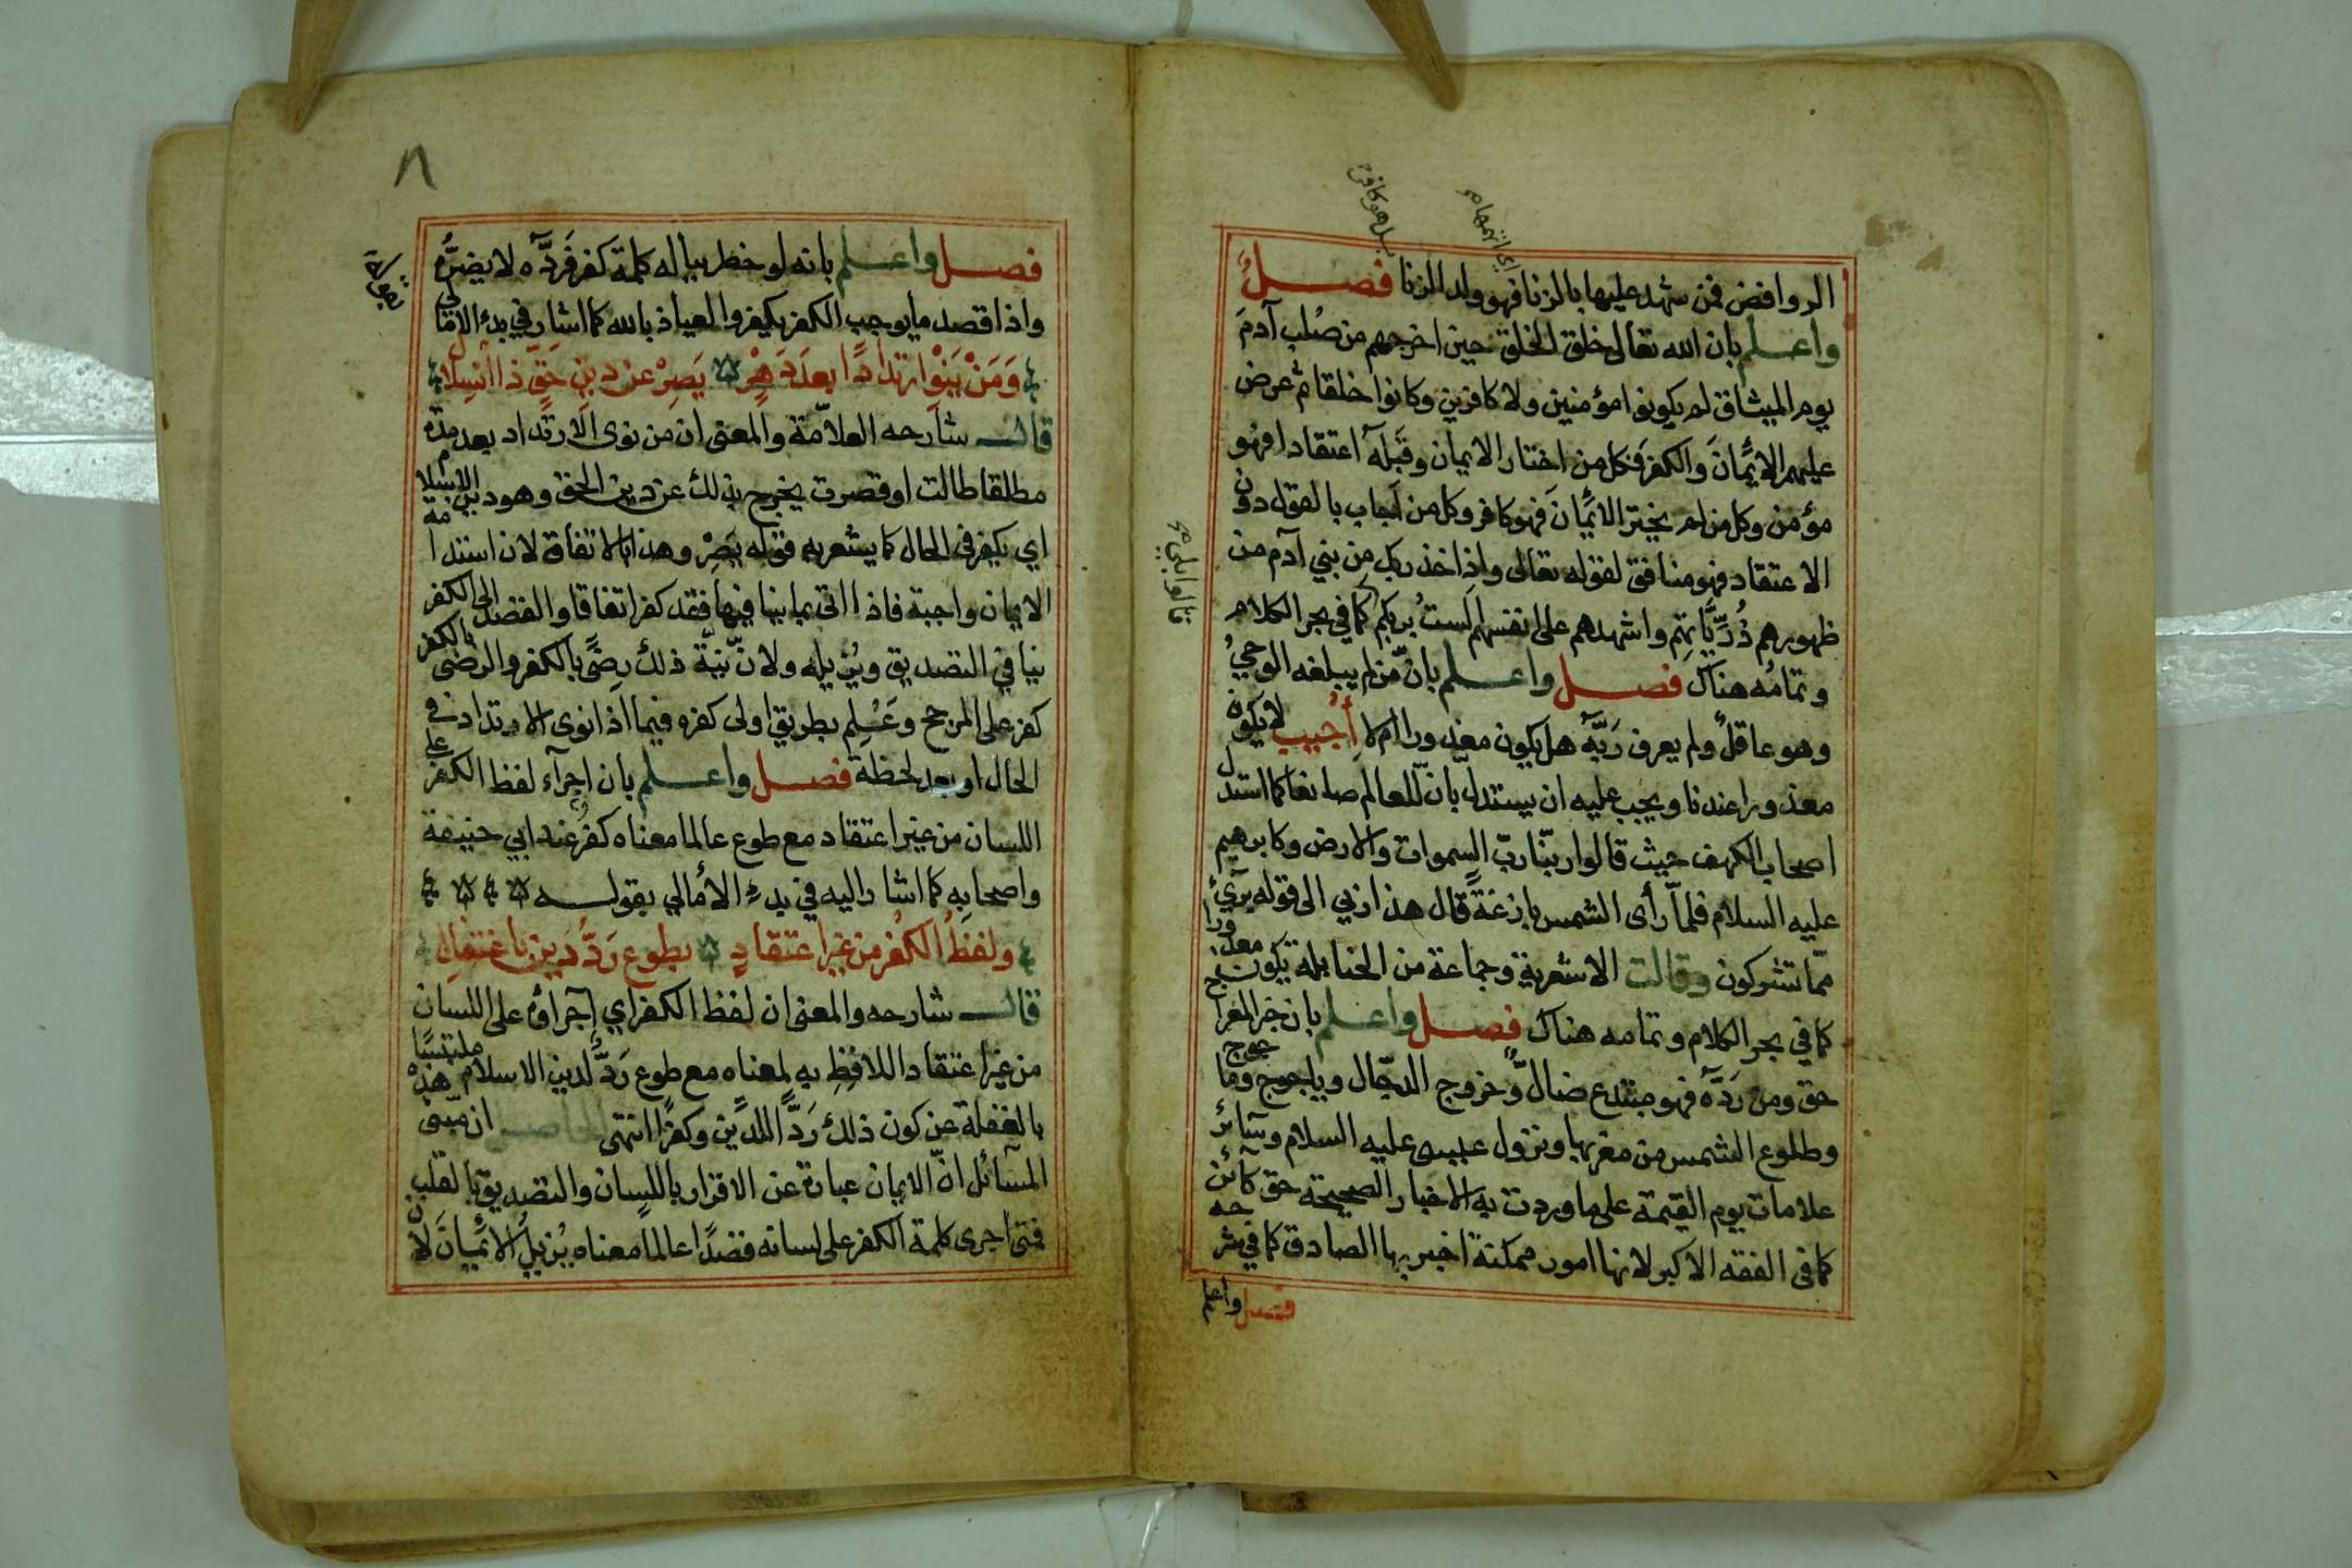 اي اتهمها م
بل هو كافر م
الروافض فمن شهد عليها بالزنا فهو ولد الزنا فصل
واعلم بان الله تعالى خلق الخلق حين اخرجهم من صُلب آدمَ
يوم الميثاق لم يكونوا مؤمنين ولا كافرين وكانوا خلقا ثم عرض
عليهم الايمانَ والكفر فكل من اختار الايمان وقَبِلَه اعتقادا فهو
مؤمن وكل من لم يختر الايمانَ فهو كافر وكل من اجاب بالقول دون
الاعتقاد فهو منافق لقوله تعالى واذ اخذ ربك من بني آدم من
ظهورهم ذُرِّيَّاتِهم واشهدهم على انفسهم الستُ بربكم كما في بحر الكلام
قالوا بلى م
وتمامُه هناك فصل واعلم بانّ من لم يبلغه الوحيُ
وهو عاقلٌ ولم يعرف رَبَّه هل يكون معذورا ام لا أُجيب لا يكون
معذورا عندنا ويجب عليه ان يستدل بانّ للعالم صانعا كما استدل
اصحاب الكهف حيث قالوا ربّنا ربّ السموات والارض وكابرهيم
عليه السلام فلمّا رأى الشمس بازغةً قال هذا ربي الى قوله بريٓئ
ممّا تشركون وقالت الاشعرية وجماعة من الحنابلة يكون معذورا
كما في بحر الكلام وتمامه هناك فصل واعلم بان خبر المعراج
حق ومن رَدَّه فهو مبتدع ضالٌّ وخروج الدجّال وياجوج وماجوج
وطلوع الشمس من مغربها ونزول عيسى عليه السلام وسآئر
علامات يوم القيمة على ما وردت به الاخبار الصحيحة حق كآئن
كما في الفقه الاكبر لانها امور ممكنة اخبر بها الصادق كما في شرحه
فصل واعلم
٨
فصل واعلم بانه لو خطر بباله كلمة كفر فَرَدَّه لا يضرُّه
واذا قصد ما يوجب الكفر يكفر والعياذ بالله كما اشار في بدء الامالي
بقوله
وَمَنْ يَنْوِ ارتدادًا بعدَ دَهرٍ يَصِرْ عن دينِ حَقٍّ ذا انسلال
قال شارحه العلاّمة والمعنى ان من نوى الارتداد بعد مدة
مطلقا طالت او قصرت يخرج بذلك عن دين الحق وهو دين الاسلام
اي يكفر في الحال كما يشعر به قوله يَصِرْ وهذا بالاتفاق لان استدامة
الايمان واجبة فاذا اتى بما ينافيها فقد كفر اتفاقا والقصد الى الكفر
ينافي التصديق ويُزيله ولانّ نيّة ذلك رِضًى بالكفر والرضى بالكفر
كفر على المرجح وعُلِم بطريق اولى كفره فيما اذا نوى الارتداد في
الحال او بعد لحظة فصل واعلم بان اجرآء لفظ الكفر على
اللسان من غير اعتقاد مع طوع عالما معناه كفرٌ عند ابي حنيفة
واصحابه كما اشار اليه في بدء الأمالي بقوله
ولفظُ الكفر من غير اعتقادٍ بطوع رَدُّ دين باغتفالِ
قال شارحه والمعنى ان لفظ الكفر اي إجرآؤه على اللسان
من غير اعتقاد اللافِظِ به لمعناه مع طوع رَدٌّ لدين الاسلام ملتبسًا
بالغفلة عن كون ذلك رَدًّا للدين وكفرًا انتهى الحاصل ان مبنى هذه
المسآئل انّ الايمان عبارة عن الاقرار باللسان والتصديق بالقلب
فمتى اجرى كلمة الكفر على لسانه قصدًا عالما معناه يُزيلُ الايمانَ لان